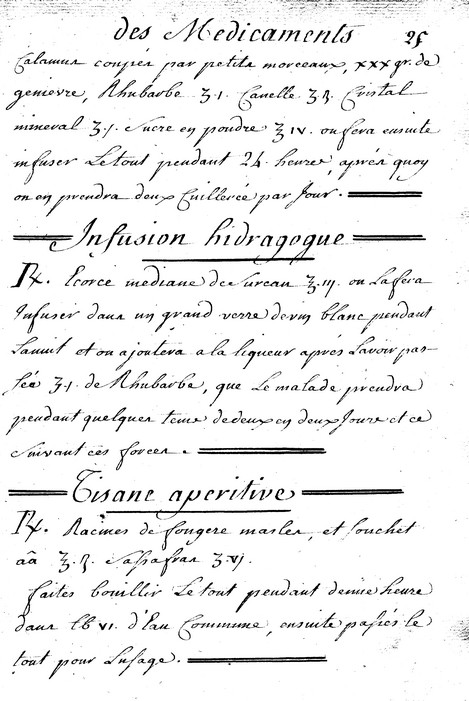 des Medicaments 25
Calamus coupés par petits morceaux, xxx gr. de
genievre, Rhubarbe ʒ.i. Canelle ʒ.ß. Cristal
mineral ʒ.s. Sucre en poudre ʒ iv. on fera ensuite
infuser Le tout pendant 24. heures, aprés quoy
on en prendra deux Cuillerée par Jour.
Infusion hidragogue
℞. Ecorce mediane de Sureau ʒ.iij. on La fera
Infuser dans un grand verre de vin blanc pendant
La nuit et on ajoutera a la liqueur aprés Lavoir pas-
sée ʒ.i. de Rhubarbe, que Le malade prendra
pendant quelques tems de deux en deux Jours et ce
suivant ces forces.
Tisane aperitive
℞. Racines de fougere masles, et souchet
aâ ʒ.ß. Sassafras ʒ.vj.
faites bouillir Le tout pendant demie heure
dans lb vi. d'Eau Commune, ensuite passés le
tout pour Lusage.